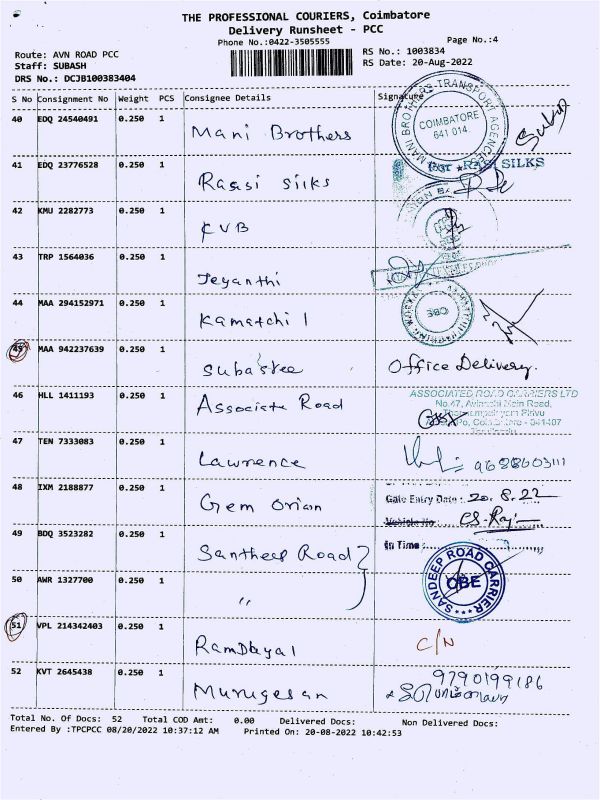 THE PROFESSIONAL COURIERS, Coimbatore
Delivery Runsheet - PCC
Phone No.:0422-3505555
Page No.:4
Route: AVN ROAD PCC
RS No.: 1003834
Staff: SUBASH
RS Date: 20-Aug-2022
DRS No.: DCJB100383404
S No Consignment No Weight PCS Consignee Details Signature
40 EDQ 24540491 0.250 1 Mani Brothers
MANI BROTHERS TRANSPORT AGENCIES
COIMBATORE
641 014.
41 EDQ 23776528 0.250 1 Rassi silks
For RASSI SILKS
42 KMU 2282773 0.250 1 KVB
43 TRP 1564036 0.250 1 Jeyanthi
44 MAA 294152971 0.250 1 Kamatchi 1
CBE
45 MAA 942237639 0.250 1 Subastee Office Delivery.
46 HLL 1411193 0.250 1 Associate Road
ASSOCIATED ROAD CARRIERS LTD
No.47, Avinashi Main Road,
Po, Coimbatore - 641407
47 TEN 7333083 0.250 1 Lawrence
48 IXM 2188877 0.250 1 Gem Orian
Gate Entry Date: 20.8.22
Vehicle No
49 BDQ 3523282 0.250 1 Santheep Road
In Time:
50 AWR 1327700 0.250 1 〃
SANDEEP ROAD CARRIER
CBE
51 VPL 214342403 0.250 1 RamDayal C/N
52 KVT 2645438 0.250 1 Murugesan 9790199186
Total No. Of Docs: 52 Total COD Amt: 0.00 Delivered Docs: Non Delivered Docs:
Entered By :TPCPCC 08/20/2022 10:37:12 AM Printed On: 20-08-2022 10:42:53